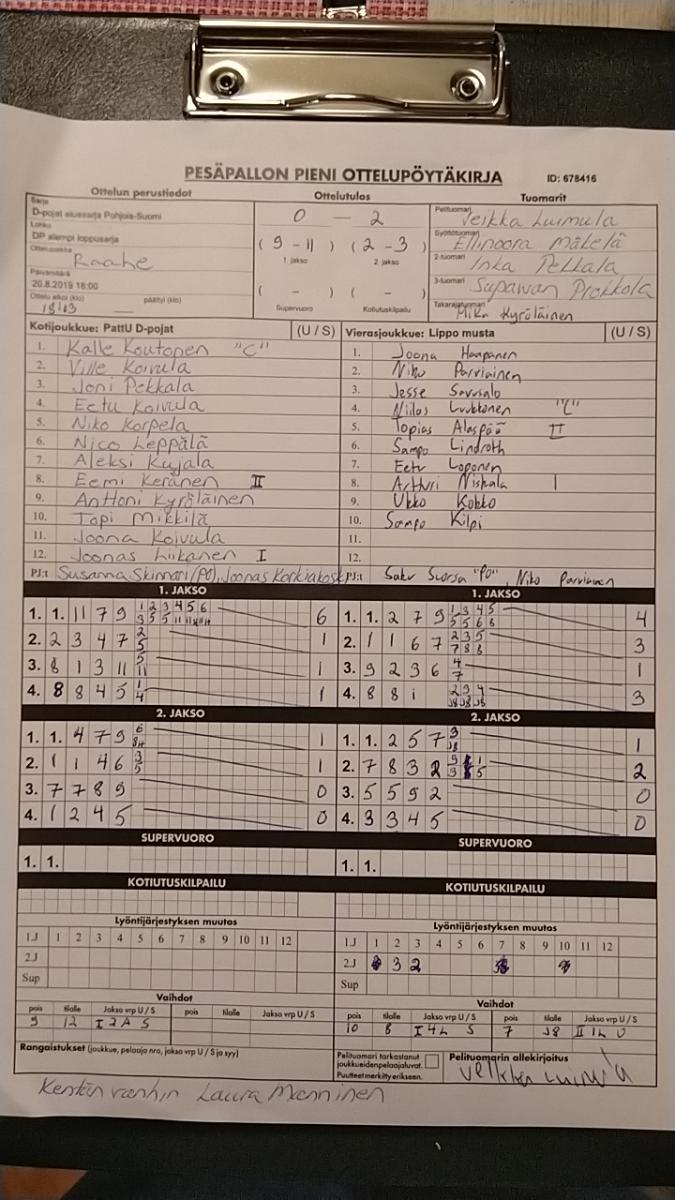 PESÄPALLON PIENI OTTELUPÖYTÄKIRJA ID: 678416
Ottelun perustiedot Ottelutulos Tuomarit
Sarja
D-pojat aluesarja Pohjois-Suomi
Lohko
DP alempi loppusarja
Raahe
Päivämäärä
20.8.2019 18:00
Ottelu alkoi (klo) päättyi (klo)
18:03
0 — 2
(9 - 11) (2 - 3)
1. jakso 2. jakso
( - ) ( - )
Supervuoro Kotiutuskilpailu
Pelituomari Veikka Luimula
Syöttötuomari Ellinoora Mäkelä
2-tuomari Inka Pekkala
3-tuomari Supawan Prokkola
Takarajatuomari Mika Kyröläinen
Kotijoukkue: PattU D-pojat (U / S) Vierasjoukkue: Lippo musta (U / S)
1. Kalle Koutonen "C" 1. Joona Haapanen
2. Ville Koivula 2. Niko Parviainen
3. Joni Pekkala 3. Jesse Savusalo
4. Eetu Koivula 4. Niilos Luukkonen "C"
5. Niko Korpela 5. Topias Alaspää II
6. Nico Leppälä 6. Sampo Lindroth
7. Aleksi Kujala 7. Eetu Loponen
8. Eemi Keränen II 8. Artturi Niskala I
9. Anttoni Kyröläinen 9. Ukko Kokko
10. Topi Mikkilä 10. Sampo Kilpi
11. Joona Koivula 11.
12. Joonas Liikanen I 12.
PJ:t Susanna Skinnari (PO), Joonas Korkiakoski PJ:t Saku Suorsa "PO", Niko Parviainen
1. JAKSO 1. JAKSO
1. 1. 11 7 9 6 1. 1. 2 7 9 4
2. 2 3 4 7 1 2. 1 1 6 7 3
3. 8 1 3 11 1 3. 9 2 3 6 1
4. 8 8 4 5 1 4. 8 8 i 3
2. JAKSO 2. JAKSO
1. 1. 4 7 9 1 1. 1. 2 5 7 1
2. 1 1 4 6 1 2. 7 8 3 2 2
3. 7 7 8 9 0 3. 5 5 9 2 0
4. 1 2 4 5 0 4. 3 3 4 5 0
SUPERVUORO SUPERVUORO
1. 1. 1. 1.
KOTIUTUSKILPAILU KOTIUTUSKILPAILU
Lyöntijärjestyksen muutos Lyöntijärjestyksen muutos
1J 1 2 3 4 5 6 7 8 9 10 11 12 1J 1 2 3 4 5 6 7 8 9 10 11 12
2J 2J 3 2
Sup Sup
Vaihdot Vaihdot
pois tilalle Jakso vrp U / S pois tilalle Jakso vrp U / S pois tilalle Jakso vrp U / S pois tilalle Jakso vrp U / S
9 12 I 2A S 10 8 I 4L S 7 J8 II 1L U
Rangaistukset (joukkue, pelaaja nro, jakso vrp U / S ja syy)
Pelituomari tarkastanut
joukkueidenpelaajaluvat.
Puutteet merkitty erikseen.
Pelituomarin allekirjoitus
Kentän vanhin Laura Manninen